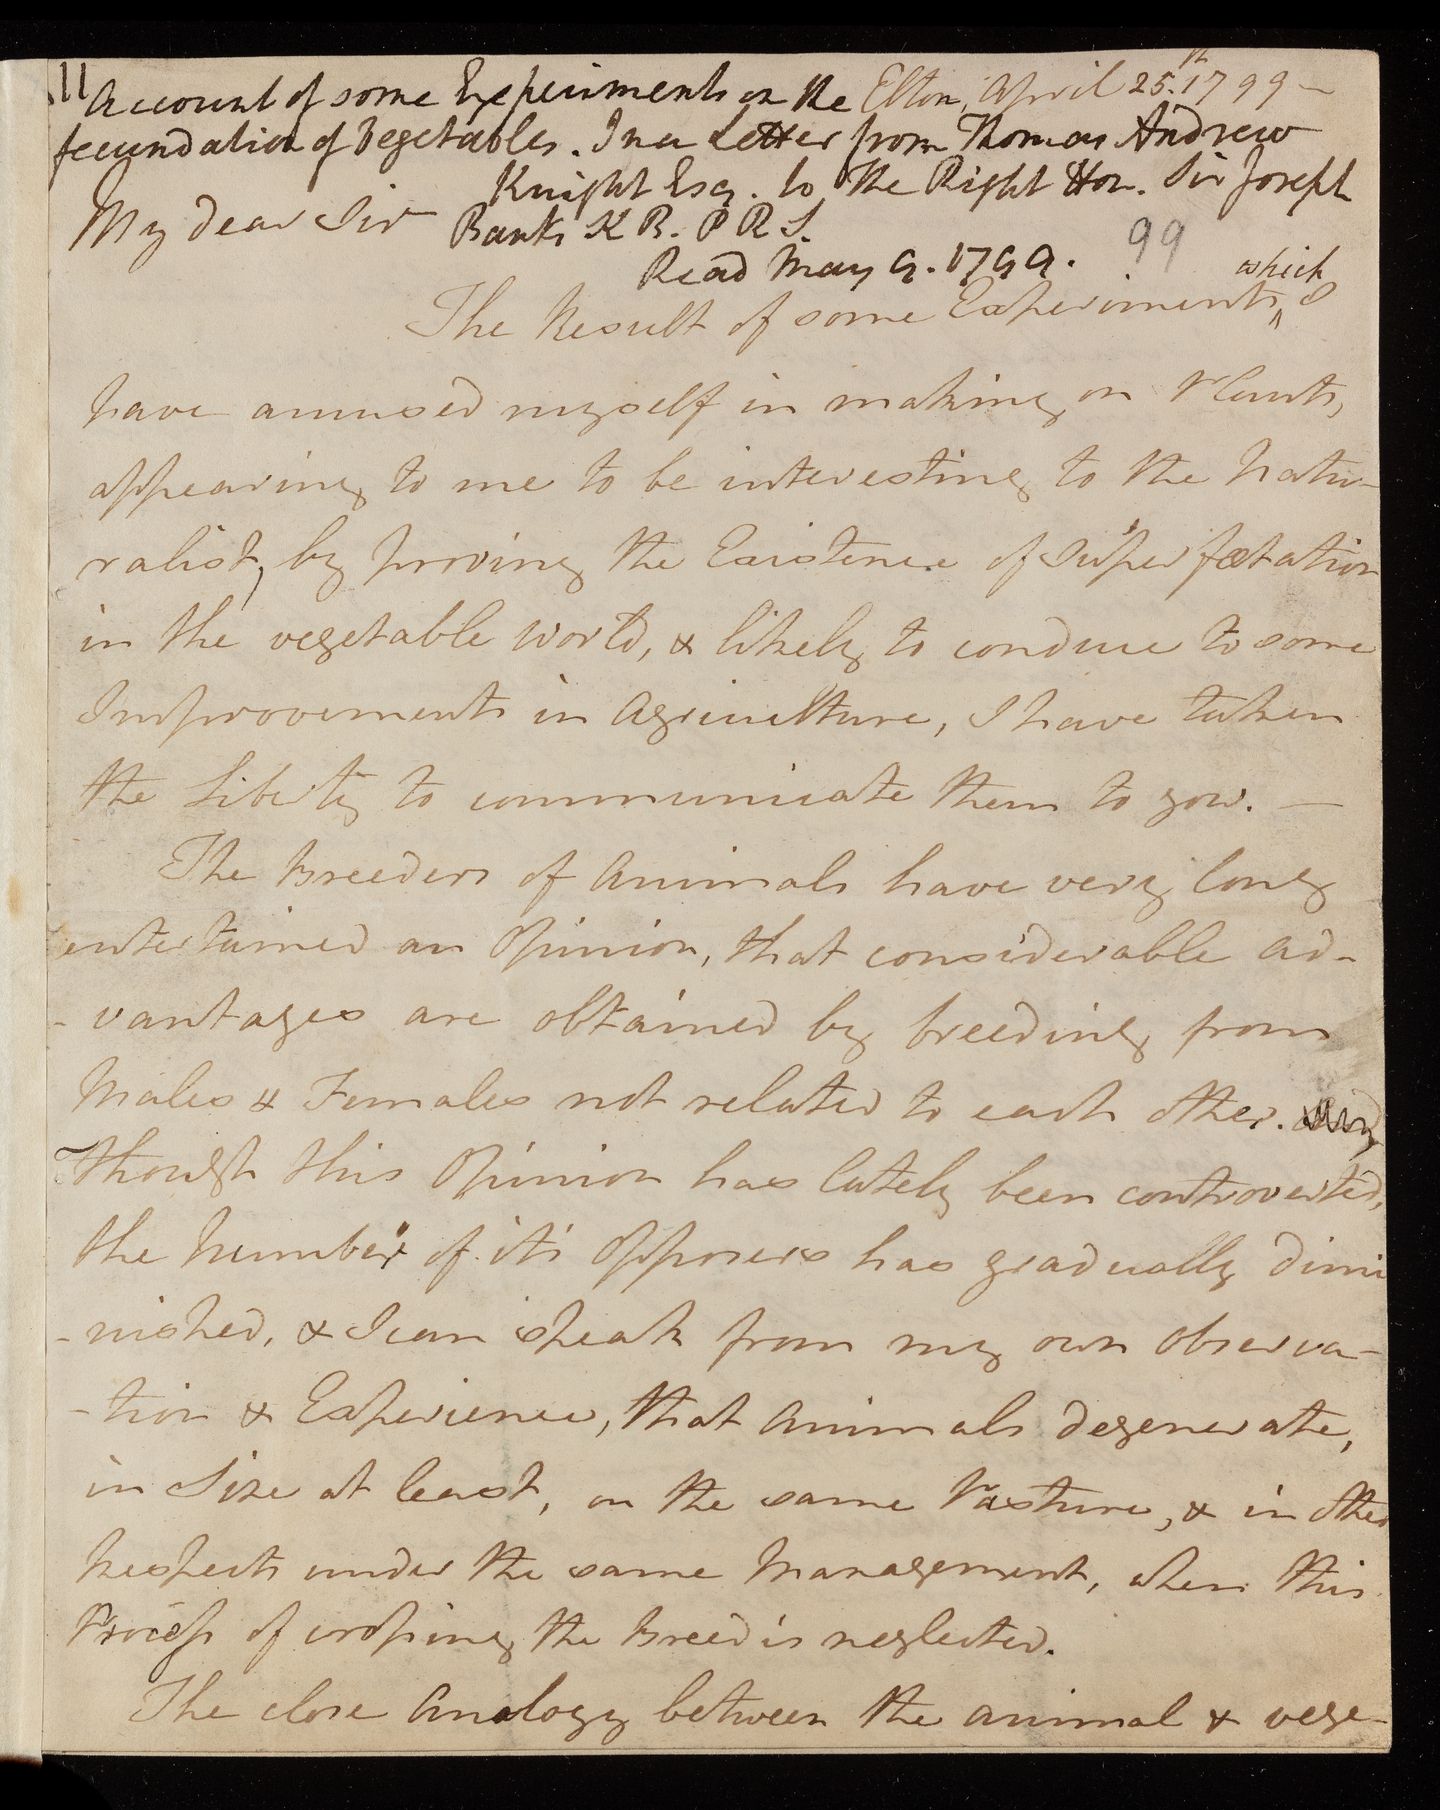 11 Account of some Experiments on the Elton, April 25.th 1799 -
fecundation of Vegetables. In a Letter from Thomas Andrew
Knight Esq. to the Right Hon. Sir Joseph
My dear Sir Banks K B. P R S.
Read May 9. 1799. 99
which
The Result of some Experiments, I
have amused myself in making on Plants,
appearing to me to be interesting to the Natu-
ralist, by proving the Existence of Superfœtation
in the vegetable World, & likely to conduce to some
Improvements in Agriculture, I have taken
the Liberty to communicate them to you. —
The Breeders of Animals have very long
entertained an Opinion, that considerable ad-
-vantages are obtained by breeding from
Males & Females not related to each other.
Though this Opinion has lately been controverted,
the Number of it's Opposers has gradually dimi
-nished, & I can speak from my own Observa-
-tion & Experience, that Animals degenerate,
in Size at least, on the same Pasture, & in other
Respects under the same Management, when this
Process of crossing the Breed is neglected.
The close Analogy between the animal & vege-